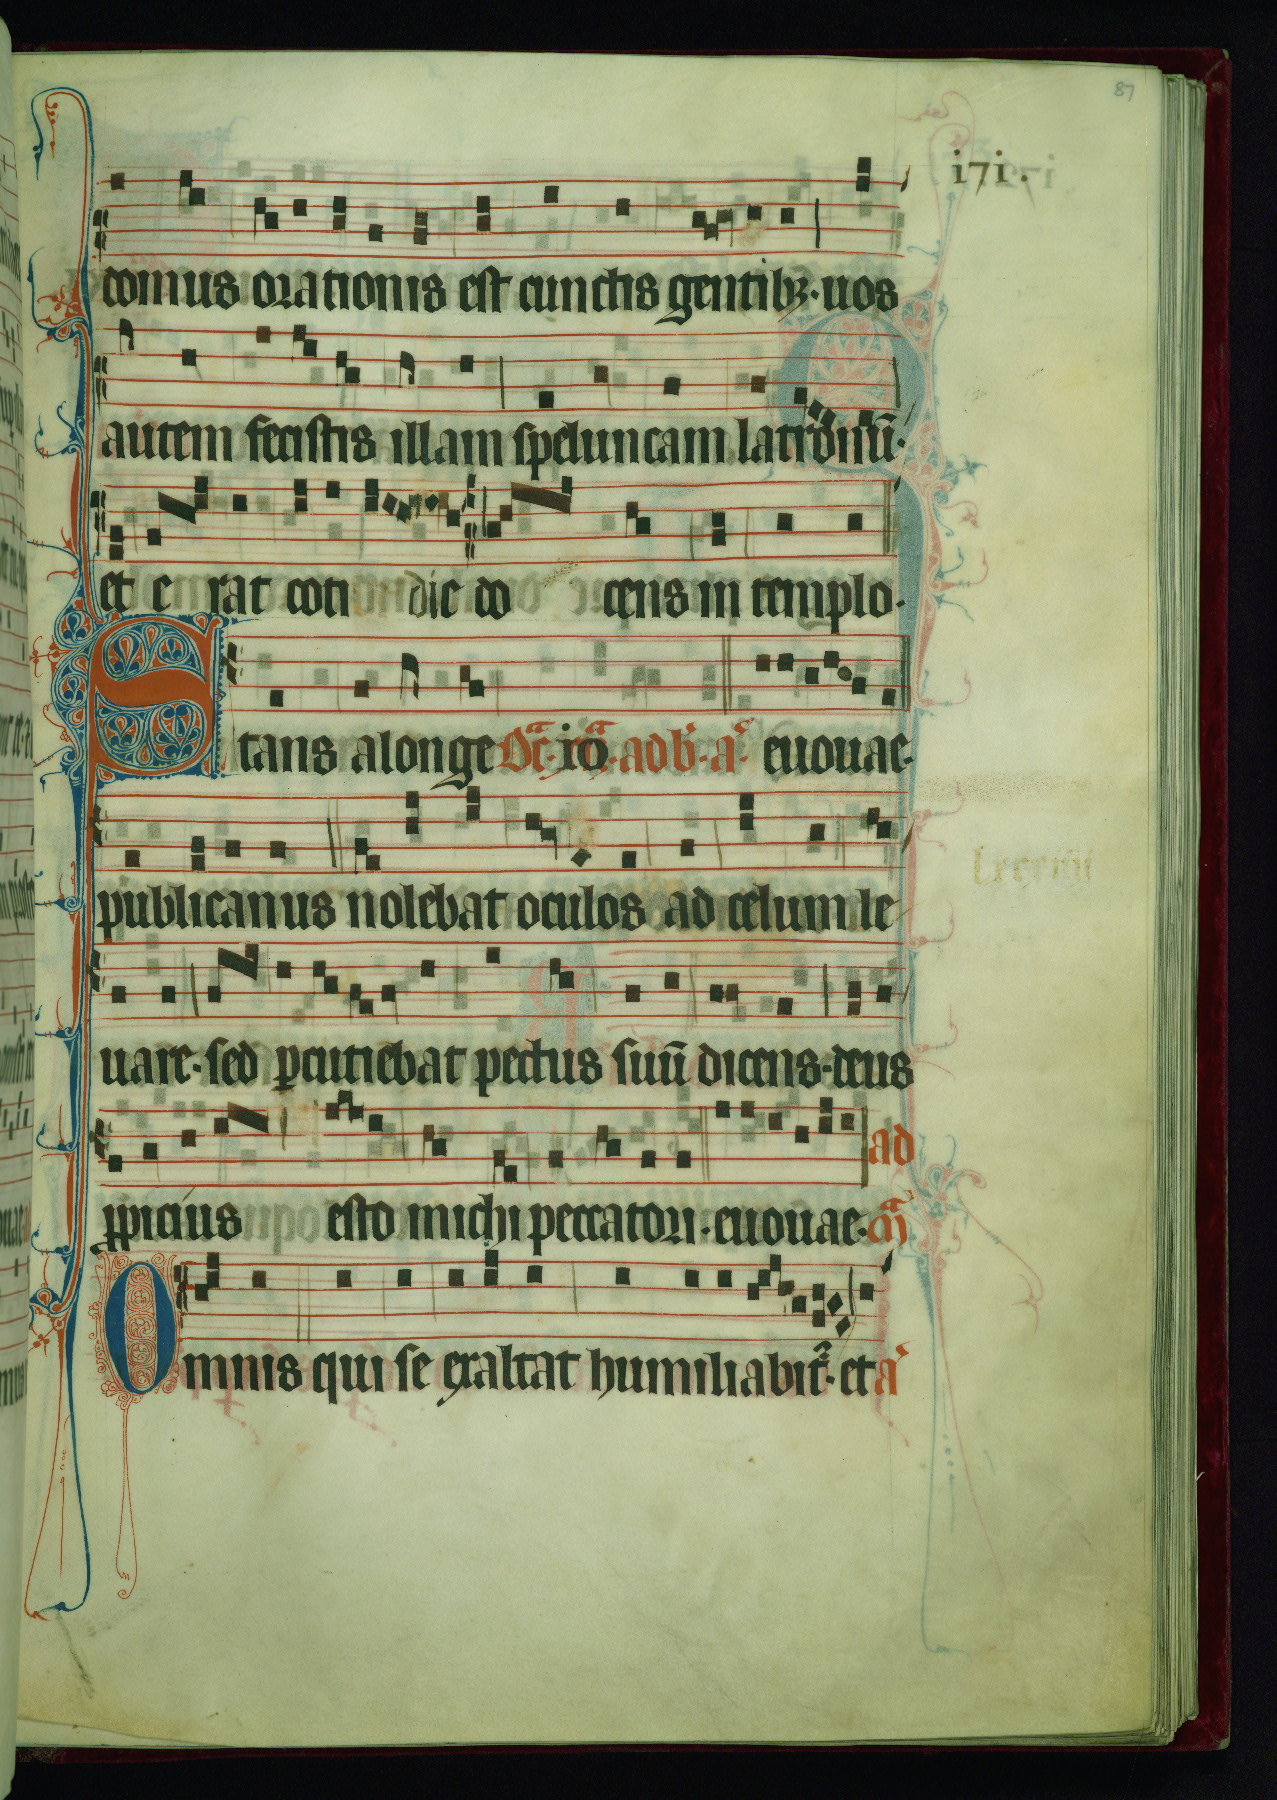 87
171.
domus orationis est cunctis gentibꝫ·uos
autem fecistis illam speluncam latronū·
et e rat coti die do cens in templo·
Stans alonge Dc̄·xa·adb'·a' euouae·
publicanus nolebat oculos ad celum le
uare·sed ꝑcutiebat pectus suū dicens·deus
ad
ꝓpicius esto michi peccatori·euouae·m̄
Omnis qui se exaltat humiliabit᷑·et a'